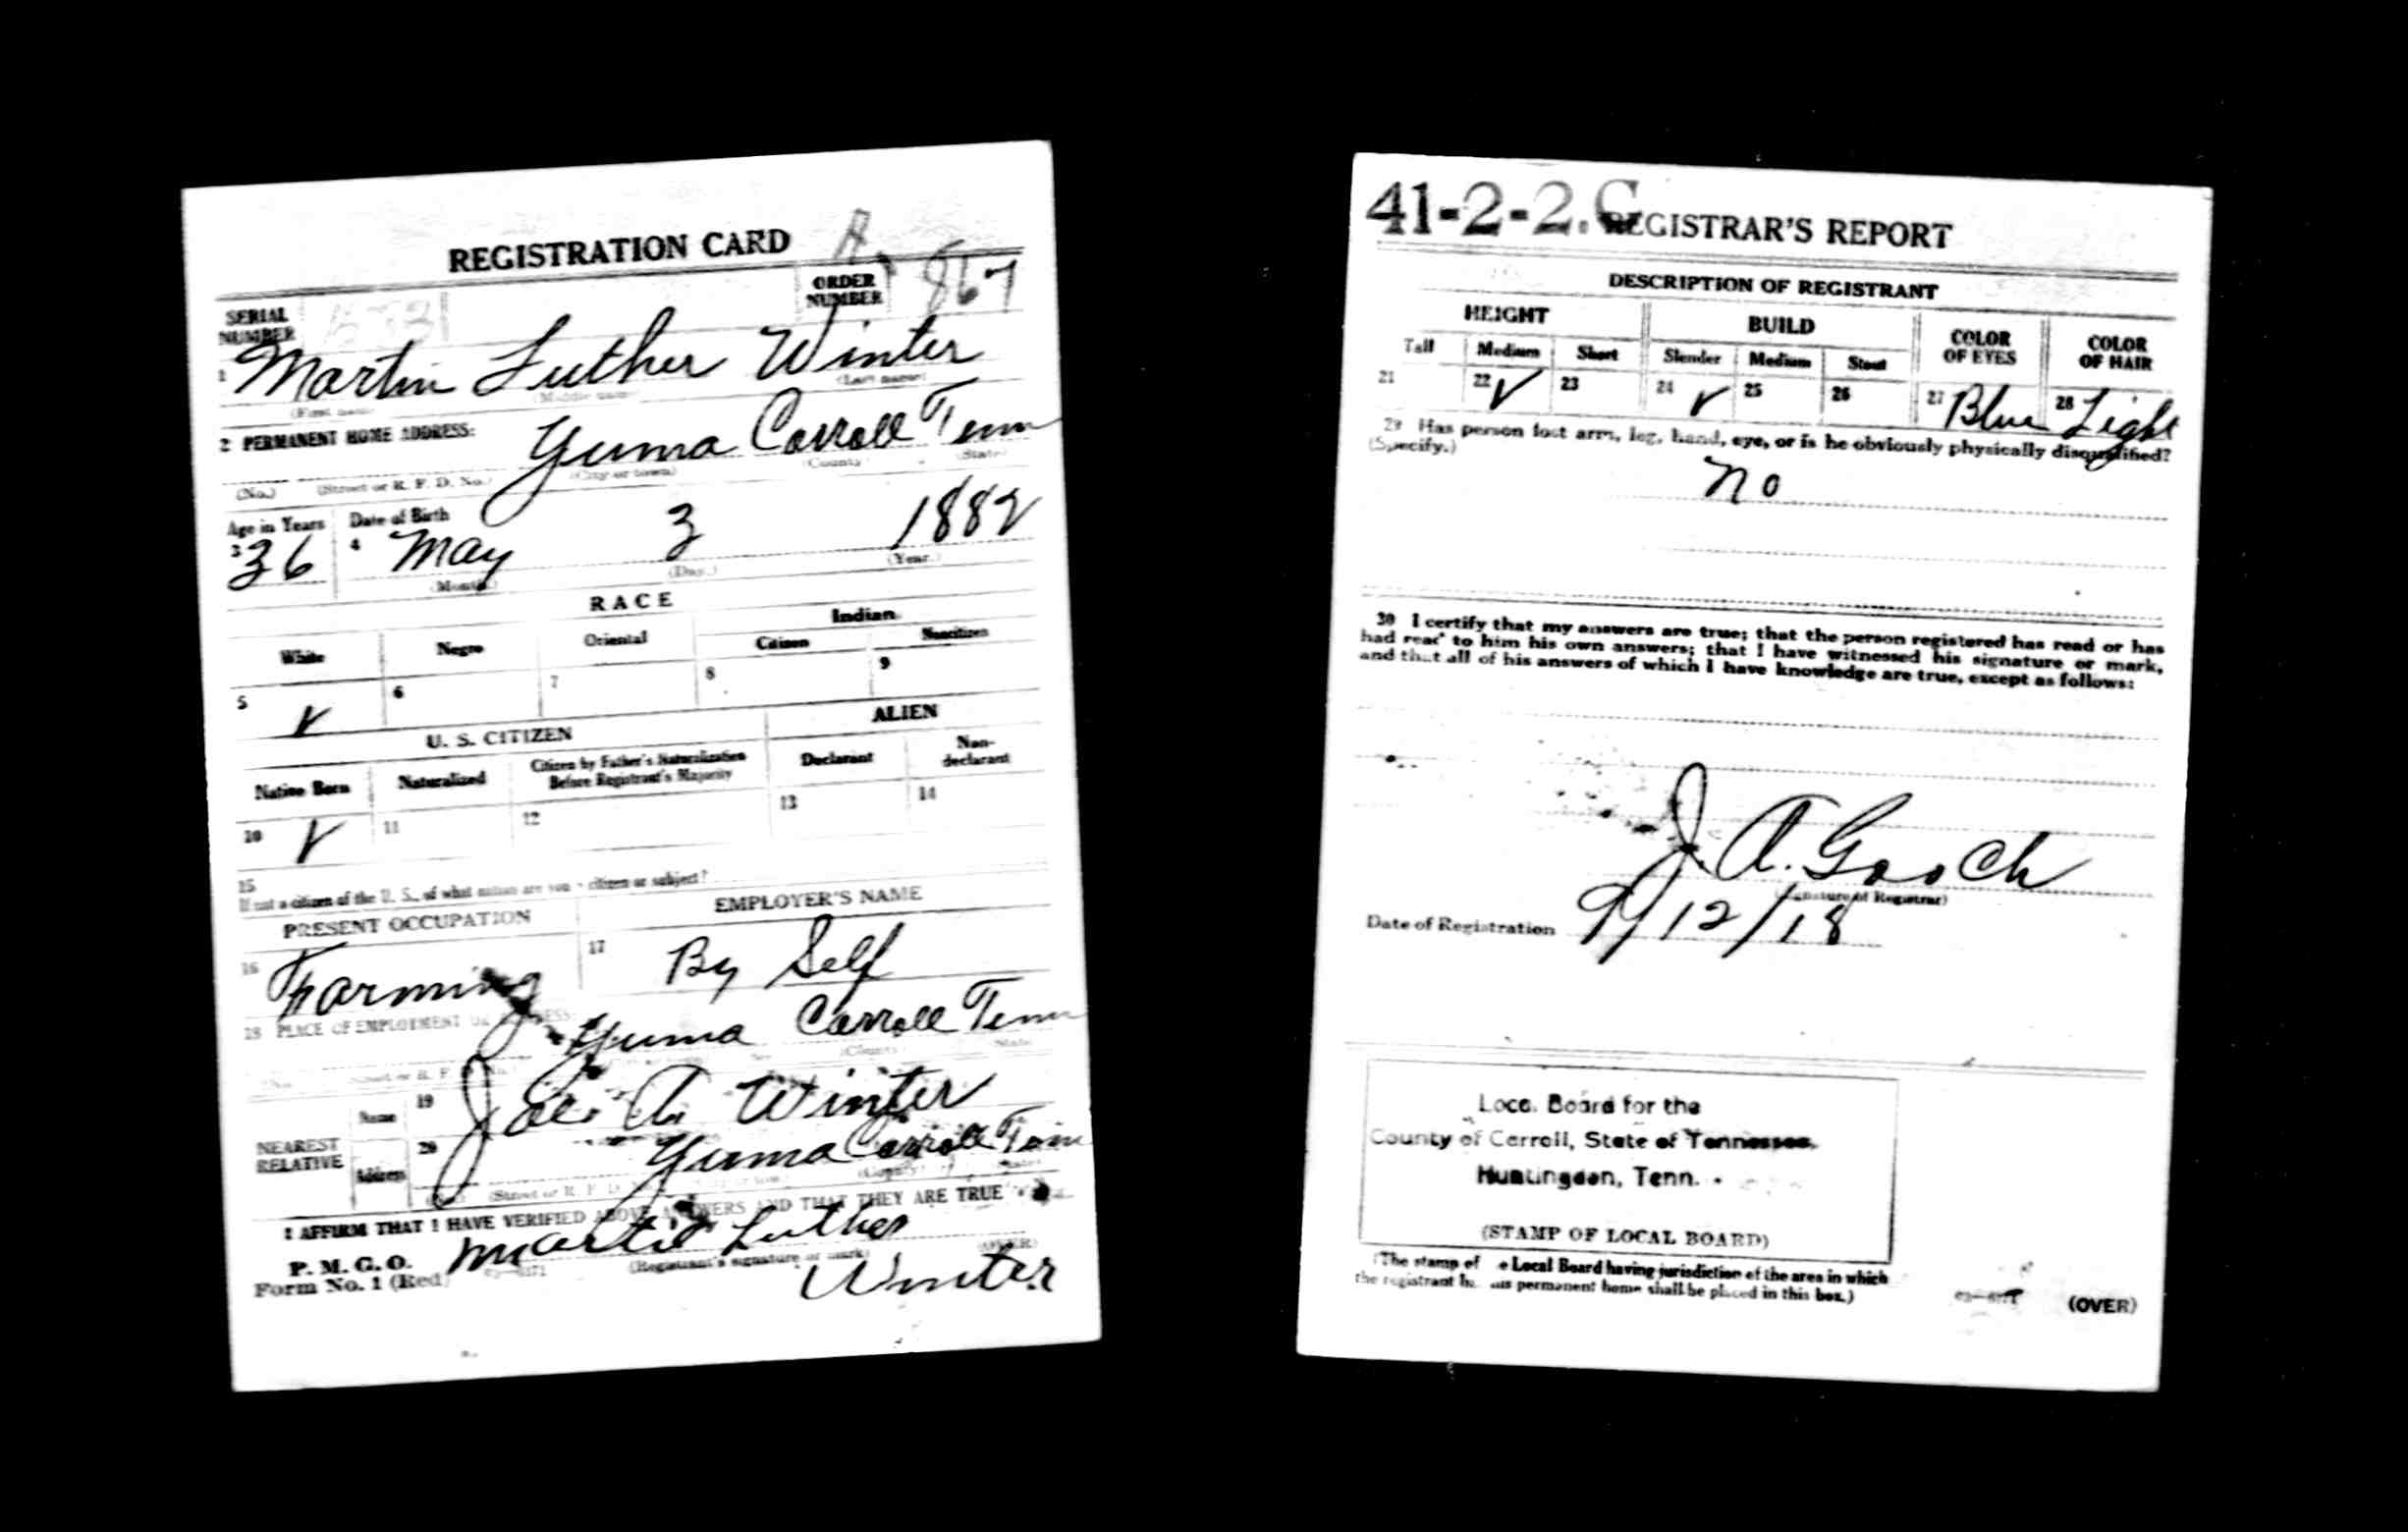 REGISTRATION CARD
SERIAL NUMBER
ORDER NUMBER A 867
1 Martin Luther Winter
(First name) (Middle name) (Last name)
2 PERMANENT HOME ADDRESS: Yuma Carroll Tenn
(No.) (Street or R. F. D. No.) (City or town) (County) (State)
Age in Years Date of Birth
3 36 4 May 3 1882
(Month.) (Day.) (Year.)
RACE
White Negro Oriental Indian Citizen Noncitizen
5 ✓ 6 7 8 9
U. S. CITIZEN ALIEN
Native Born Naturalized Citizen by Father's Naturalization Before Registrant's Majority Declarant Non-declarant
10 ✓ 11 12 13 14
15
If not a citizen of the U. S., of what nation are you a citizen or subject?
PRESENT OCCUPATION EMPLOYER'S NAME
16 Farming 17 By Self
18 PLACE OF EMPLOYMENT OR BUSINESS:
Yuma Carroll Tenn
(County) (State)
NEAREST RELATIVE
Name 19 A Winter
Address 20 Yuma Carroll Tenn
(No.) (Street or R. F. D. (County) (State)
I AFFIRM THAT I HAVE VERIFIED ABOVE ANSWERS AND THAT THEY ARE TRUE
P. M. G. O.
Form No. 1 (Red)
Martin Luther
(Registrant's signature or mark) (OVER)
Winter
41-2-2.C
REGISTRAR'S REPORT
DESCRIPTION OF REGISTRANT
HEIGHT BUILD COLOR OF EYES COLOR OF HAIR
Tall Medium Short Slender Medium Stout
21 22 ✓ 23 24 ✓ 25 26 27 Blue 28 Light
29 Has person lost arm, leg, hand, eye, or is he obviously physically disqualified?
(Specify.)
no
30 I certify that my answers are true; that the person registered has read or has
had read to him his own answers; that I have witnessed his signature or mark,
and that all of his answers of which I have knowledge are true, except as follows:
J. A. Gooch
(Signature of Registrar)
Date of Registration 9/12/18
Local Board for the
County of Carroll, State of Tennessee,
Huntingdon, Tenn.
(STAMP OF LOCAL BOARD)
(The stamp of the Local Board having jurisdiction of the area in which
the registrant has his permanent home shall be placed in this box.)
(OVER)